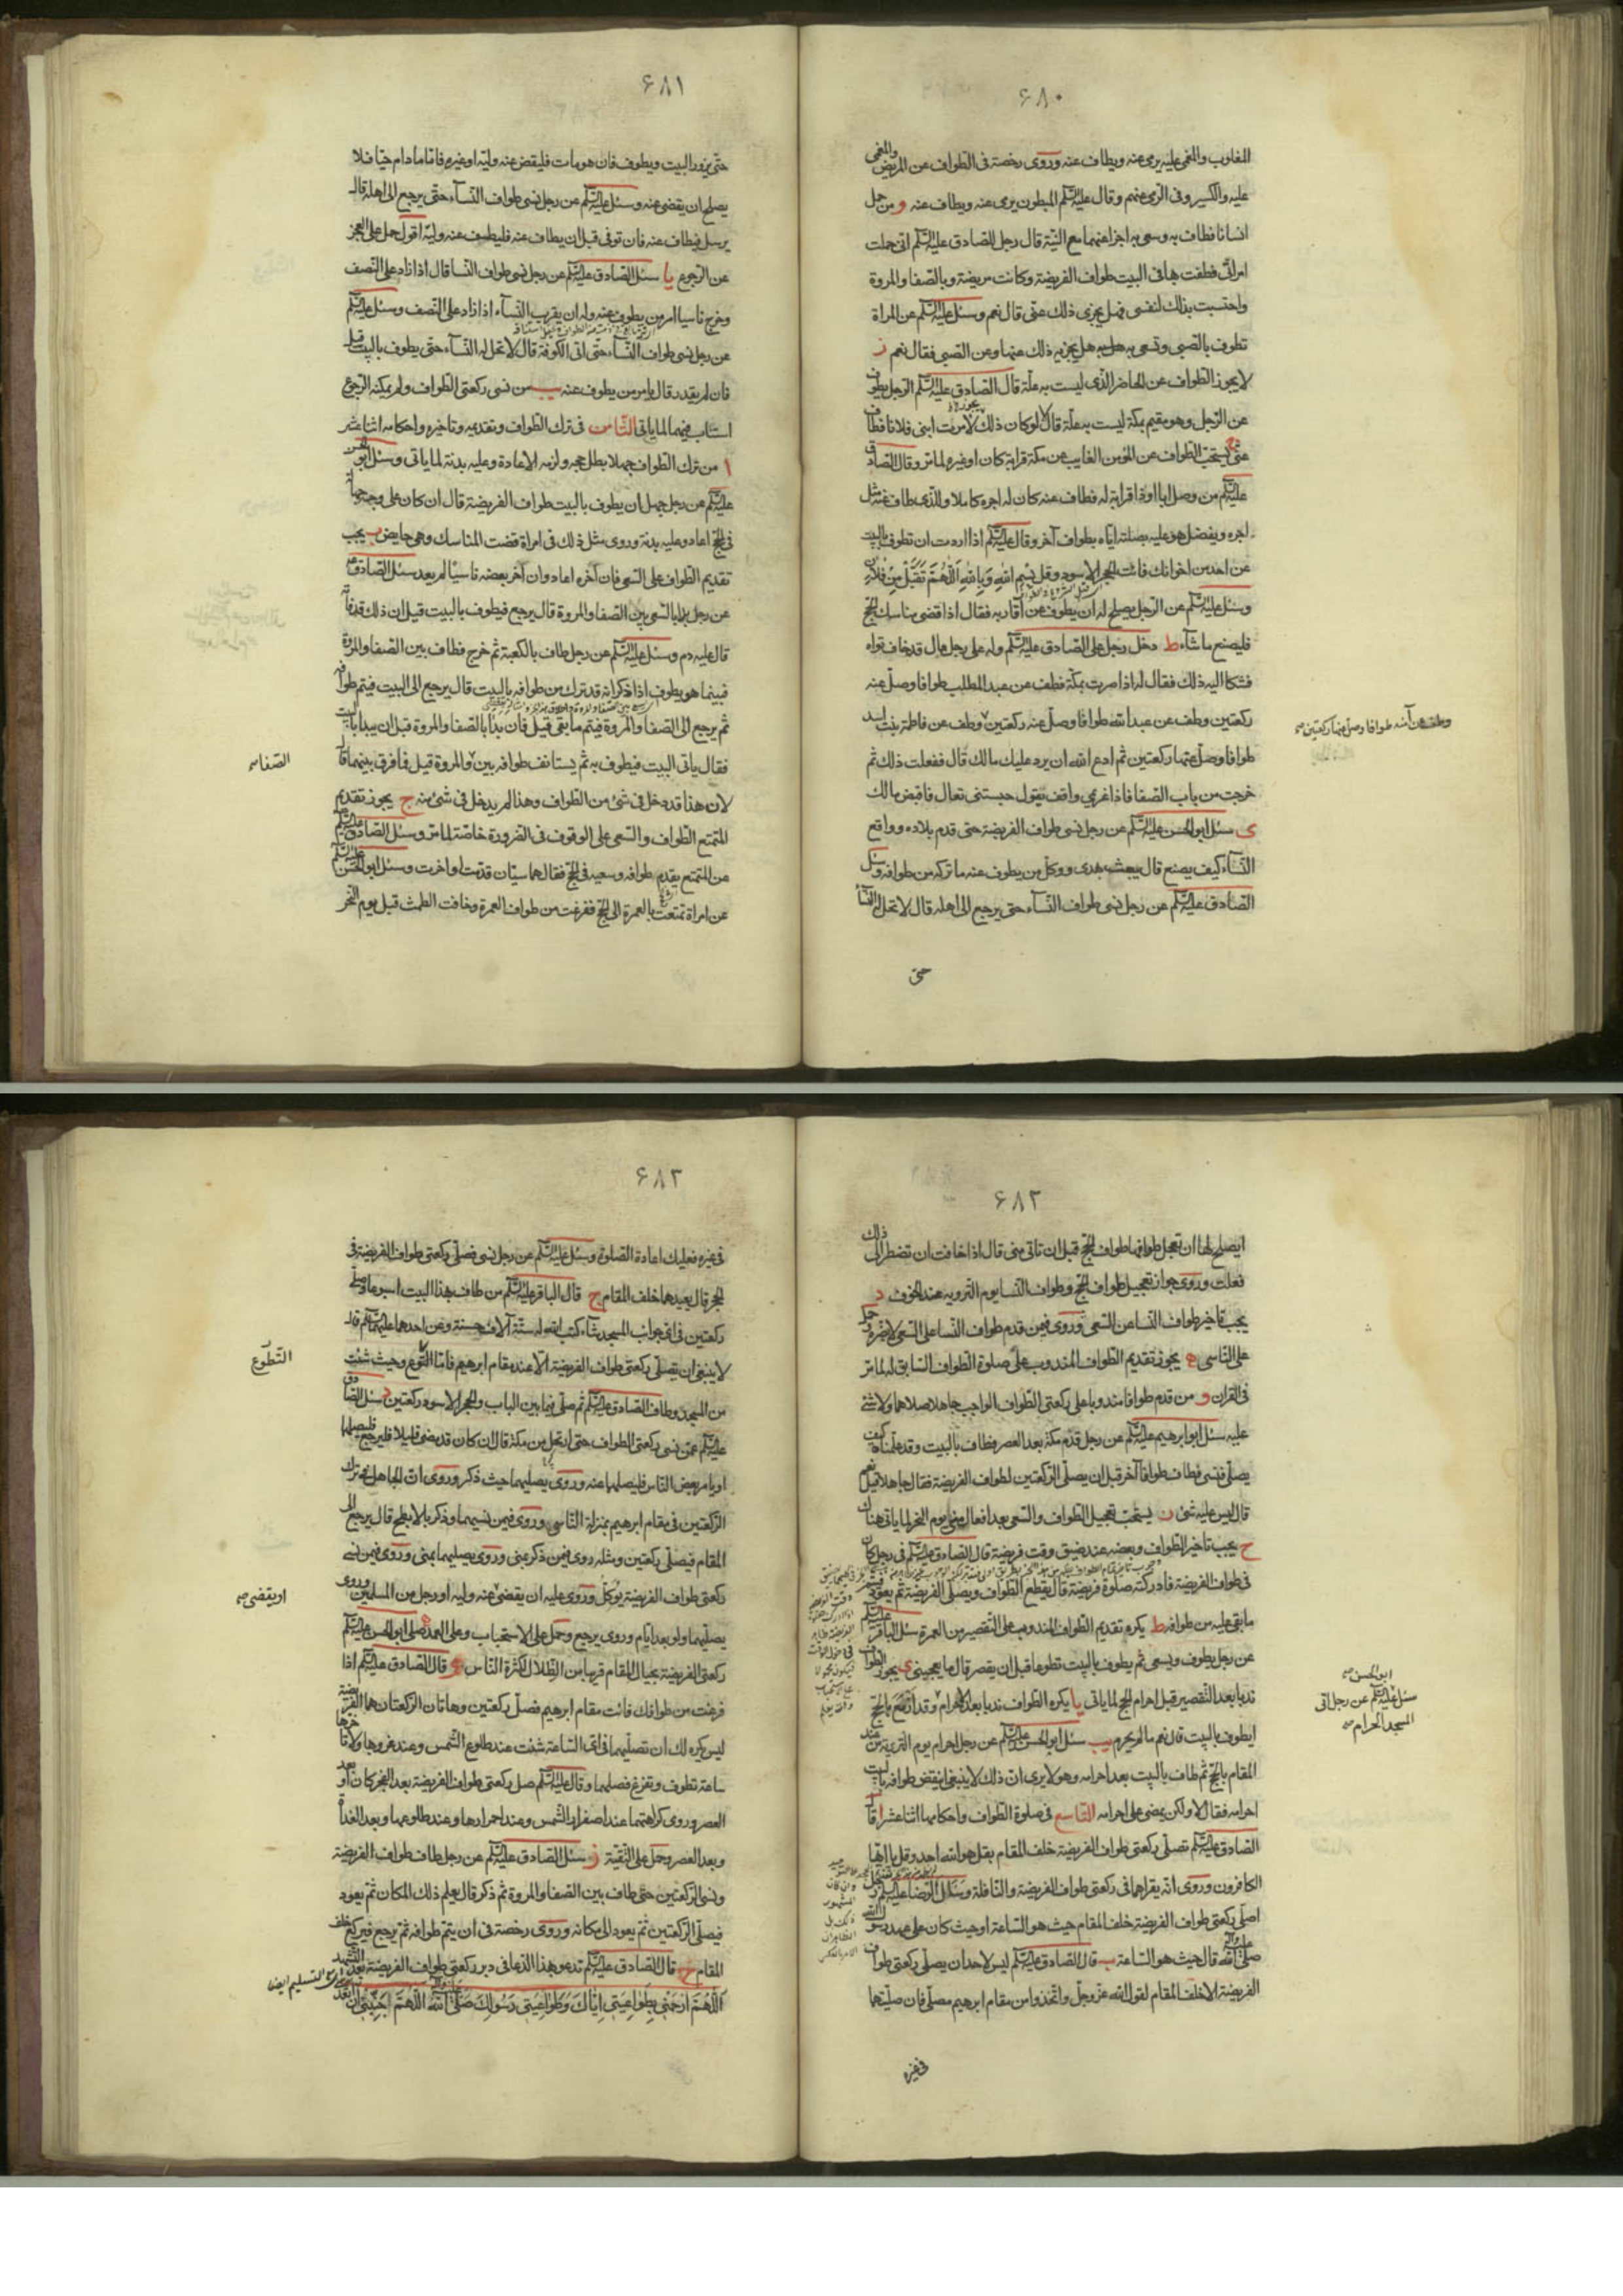 ۶۸۰
المغلوب والمغمى عليه يرمى عنه ويطاف عنه وروى رخصة فى الطواف عن المريض والمغمى
عليه والكسير وفى الرمى عنهم وقال عليه السلم المبطون يرمى عنه ويطاف عنه و من حمل
انسانا فطاف به وسعى به اجزا عنهما مع النية قال رجل للصادق عليه السلم انى حملت
امراتى فطفت بها فى البيت طواف الفريضة وكانت مريضة وبالصفا والمروة
واحتسبت بذلك لنفسى فهل يجزى ذلك عنى قال نعم وسئل عليه السلم عن المراة
تطوف بالصبى وتسعى به هل يجزيه ذلك عنها وعن الصبى فقال نعم ز
لا يجوز الطواف عن الحاضر الذى ليست به علة قال الصادق عليه السلم الرجل يطوف
عن الرجل وهو مقيم بمكة ليست به علة قال لا لو كان ذلك يجوز لامرت ابنى فلانا فطاف
عنى ح يستحب الطواف عن المؤمن الغايب عن مكة قرابة كان او غيره لما مر وقال الصادق
عليه السلم من وصل ابا او ذا قرابة له فطاف عنه كان له اجره كاملا وللذى طاف عنه مثل
اجره ويفضل هو عليه بصلته اياه بطواف آخر وقال عليه السلم اذا اردت ان تطوف بالبيت
عن احد من اخوانك فائت الحجر الاسود وقل بسم الله وبالله اللهم تقبل من فلان
وسئل عليه السلم عن الرجل يصلح له ان يطوف عن اقاربه فقال اذا قضى مناسك الحج
فليصنع ما شاء ط دخل رجل على الصادق عليه السلم وله على رجل مال قد خاف تواه
فشكا اليه ذلك فقال له اذا صرت بمكة فطف عن عبد المطلب طوافا وصل عنه
ركعتين وطف عن عبد الله طوافا وصل عنه ركعتين وطف عن فاطمة بنت اسد
وطف عن آمنة طوافا وصل عنها ركعتين صح
طوافا وصل عنها ركعتين ثم ادع الله ان يرد عليك مالك قال ففعلت ذلك ثم
خرجت من باب الصفا فاذا غريمى واقف يقول حبستنى تعال فاقبض مالك
ى سئل ابو الحسن عليه السلم عن رجل نسى طواف الفريضة حتى قدم بلاده وواقع
النساء كيف يصنع قال يبعث بهدى ووكل من يطوف عنه ما تركه من طوافه وسئل
الصادق عليه السلم عن رجل نسى طواف النساء حتى يرجع الى اهله قال لا تحل له النساء
حتى
۶۸۱
حتى يزور البيت ويطوف فان هو مات فليقض عنه وليه او غيره فاما ما دام حيا فلا
يصلح ان يقضى عنه وسئل عليه السلم عن رجل نسى طواف النساء حتى يرجع الى اهله قال
يرسل فيطاف عنه فان توفى قبل ان يطاف عنه فليطف عنه وليه اقول حمل على العجز
عن الرجوع يا سئل الصادق عليه السلم عن رجل نسى طواف النسا قال اذا زاد على النصف
وخرج ناسيا امر من يطوف عنه وله ان يقرب النساء اذا زاد على النصف وسئل عليه السلم
عن رجل نسى طواف النساء حتى اتى الكوفة قال لا تحل له النساء حتى يطوف بالبيت قيل
فان لم يقدر قال يامر من يطوف عنه يب من نسى ركعتى الطواف ولم يمكنه الرجوع
استناب فيهما لما ياتى الثامن فى ترك الطواف وتقديمه وتاخيره واحكامه اثنا عشر
ا من ترك الطواف جهلا بطل حجه ولزمه الاعادة وعليه بدنة لما ياتى وسئل ابو الحسن
عليه السلم عن رجل جهل ان يطوف بالبيت طواف الفريضة قال ان كان على وجه جهالة
فى الحج اعاد وعليه بدنة وروى مثل ذلك فى امراة قضت المناسك وهى حايض ب يجب
تقديم الطواف على السعى فان آخره اعاد وان آخر بعضه ناسيا لم يعد سئل الصادق
عن رجل بدا بالسعى بين الصفا والمروة قال يرجع فيطوف بالبيت قيل ان ذلك قد فاته
قال عليه دم وسئل عليه السلم عن رجل طاف بالكعبة ثم خرج فطاف بين الصفا والمروة
فبينما هو يطوف اذا ذكر انه قد ترك من طوافه بالبيت قال يرجع الى البيت فيتم طوافه
ثم يرجع الى الصفا والمروة فيتم ما بقى قيل فان بدا بالصفا والمروة قبل ان يبدا بالبيت
فقال ياتى البيت فيطوف به ثم يستانف طوافه بين والمروة قيل فما فرق بينهما قال
الصفا صح
لان هذا قد دخل فى شئ من الطواف وهذا لم يدخل فى شئ منه ج يجوز تقديم
المتمتع الطواف والسعى على الوقوف فى الضرورة خاصة لما مر وسئل الصادق عليه السلم
عن المتمتع يقدم طوافه وسعيه فى الحج فقال هما سيان قدمت او اخرت وسئل ابو الحسن عليه السلم
عن امراة تمتعت بالعمرة الى الحج ففرغت من طواف العمرة وخافت الطمث قبل يوم النحر
۶۸۲
ايصلح لها ان تعجل طوافها طواف الحج قبل ان تاتى منى قال اذا خافت ان تضطر الى ذلك
فعلت وروى جواز تعجيل طواف الحج وطواف النسا يوم التروية عند الخوف د
يجب تاخير طواف النسا عن السعى وروى فيمن قدم طواف النسا على السعى لا يضره وحمل
على الناسى ه يجوز تقديم الطواف المندوب على صلوة الطواف السابق له لما مر
فى القران و من قدم طوافا مندوبا على ركعتى الطواف الواجب جاهلا صلاهما ولا شئ
عليه سئل ابو ابرهيم عليه السلم عن رجل قدم مكة بعد العصر فطاف بالبيت وقد علمناه كيف
يصلى فنسى فطاف طوافا آخر قبل ان يصلى الركعتين لطواف الفريضة فقال جاهلا قيل نعم
قال ليس عليه شئ ز يستحب تعجيل الطواف والسعى بعد افعال منى يوم النحر لما ياتى هناك
ح يجب تاخير الطواف وبعضه عند ضيق وقت فريضة قال الصادق عليه السلم فى رجل كان
فى طواف الفريضة فادركته صلوة فريضة قال يقطع الطواف ويصلى الفريضة ثم يعود فيتم
ما بقى عليه من طوافه ط يكره تقديم الطواف المندوب على التقصير من العمرة سئل الباقر عليه السلم
عن رجل يطوف ويسعى ثم يطوف بالبيت تطوعا قبل ان يقصر قال ما يعجبنى ى يجوز الطواف
ندبا بعد التقصير قبل احرام الحج لما ياتى يا يكره الطواف ندبا بعد الاحرام وقد اتمتع بالحج
ابو الحسن صح
سئل عليه السلم عن رجل اتى
المسجد الحرام صح
ايطوف بالبيت قال نعم ما لم يحرم يب سئل ابو الحسن عليه السلم عن رجل احرم يوم التروية من عند
المقام بالحج ثم طاف بالبيت بعد احرامه وهو لا يرى ان ذلك لا ينبغى اينقض طوافه بالبيت
احرامه فقال لا ولكن يمضى على احرامه التاسع فى صلوة الطواف واحكامها اثنا عشر ا قال
الصادق عليه السلم تصلى ركعتى طواف الفريضة خلف المقام بقل هو الله احد وقل يا ايها
الكافرون وروى انه يقراهما فى ركعتى طواف الفريضة والنافلة وسئل الرضا عليه السلم
اصلى ركعتى طواف الفريضة خلف المقام حيث هو الساعة او حيث كان على عهد رسول الله
صلى الله عليه وآله قال حيث هو الساعة ب قال الصادق عليه السلم ليس لاحد ان يصلى ركعتى طواف
الفريضة الا خلف المقام لقول الله عز وجل واتخذوا من مقام ابرهيم مصلى فان صليتها
فى غيره
۶۸۳
فى غيره فعليك اعادة الصلوة وسئل عليه السلم عن رجل نسى فصلى ركعتى طواف الفريضة فى
الحجر قال يعيدها خلف المقام ج قال الباقر عليه السلم من طاف بهذا البيت اسبوعا وصلى
ركعتين فى اى جوانب المسجد شاء كتب الله له ستة آلاف حسنة وعن احدهما عليهما السلم قال
لا ينبغى ان يصلى ركعتى طواف الفريضة الا عند مقام ابرهيم فاما التطوع وحيث شئت
التطوع
من المسجد وطاف الصادق عليه السلم ثم صلى فيما بين الباب والحجر الاسود ركعتين د سئل الصادق
عليه السلم عمن نسى ركعتى الطواف حتى ارتحل من مكة قال ان كان قد مضى قليلا فليرجع فليصلهما
او يامر بعض الناس فليصلهما عنه وروى يصليهما حيث ذكر وروى ان الجاهل فى ترك
الركعتين فى مقام ابرهيم بمنزلة الناسى وروى فيمن نسيهما وذكر بالابطح قال يرجع الى
المقام فيصلى ركعتين ومثله روى فيمن ذكر بمنى وروى يصليهما بمنى وروى فيمن نسى
ركعتى طواف الفريضة يوكل وروى عليه ان يقضى عنه وليه او رجل من المسلمين وروى
او يقضى صح
يصليهما ولو بعد ايام وروى يرجع وحمل على الاستحباب وعلى العمد ه صلى ابو الحسن عليه السلم
ركعتى الفريضة بحيال المقام قريبا من الظلال لكثرة الناس و قال الصادق عليه السلم اذا
فرغت من طوافك فائت مقام ابرهيم فصل ركعتين وهاتان الركعتان هما الفريضة
ليس يكره لك ان تصليهما فى اى الساعة شئت عند طلوع الشمس وعند غروبها ولا تؤخرها
ساعة تطوف وتفرغ فصلهما وقال عليه السلم صل ركعتى طواف الفريضة بعد الفجر كان او بعد
العصر وروى كراهتهما عند اصفرار الشمس وعند احمرارها وعند طلوعها وبعد الغداة
وبعد العصر وحمل على التقية ز سئل الصادق عليه السلم عن رجل طاف طواف الفريضة
ونسى الركعتين حتى طاف بين الصفا والمروة ثم ذكر قال يعلم ذلك المكان ثم يعود
فيصلى الركعتين ثم يعود الى مكانه وروى رخصة فى ان يتم طوافه ثم يرجع فيركع خلف
المقام ح قال الصادق عليه السلم تدعو بهذا الدعا فى دبر ركعتى طواف الفريضة بعد التشهد
اللهم ارحمنى بطواعيتى اياك وطواعيتى رسولك صلى الله عليه وآله اللهم جنبنى ان